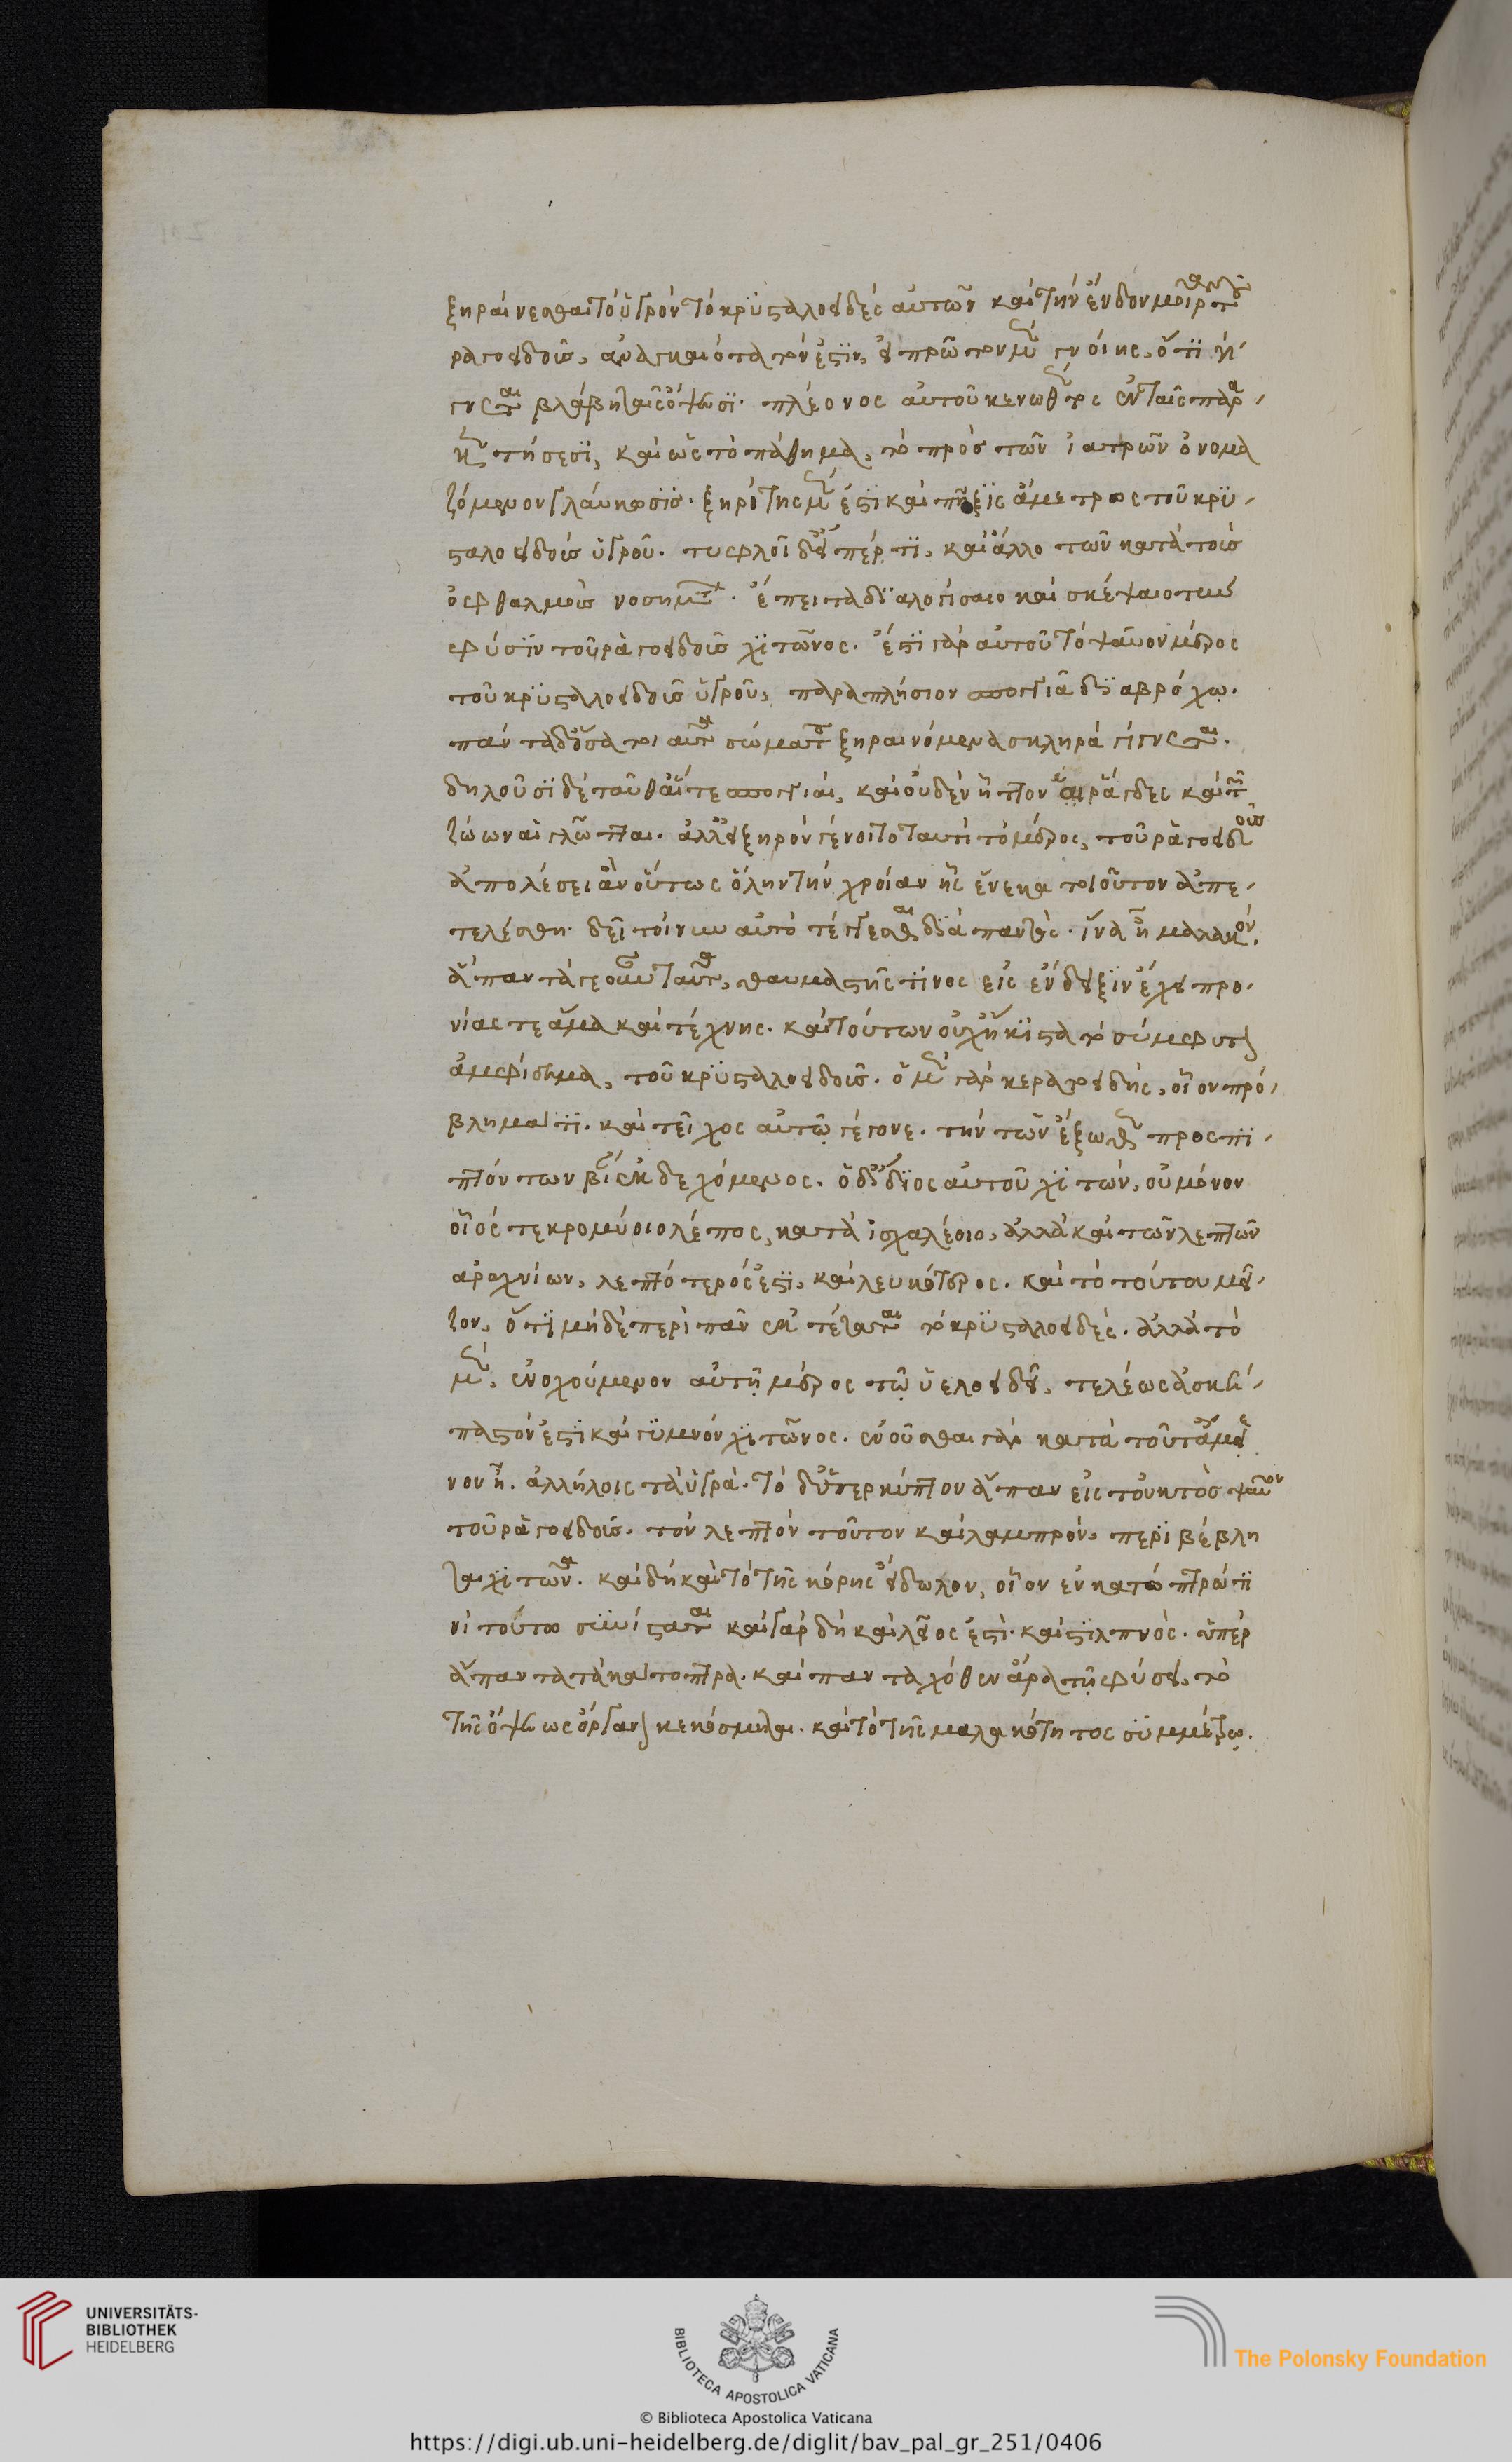 ξηραίνεσθαι τὸ ὑγρὸν τὸ κρυσταλλοειδὲς αὐτῶν καὶ τὴν ἔνδον μοῖραν τοῦ
ραγοειδοῦς, ἀναγκαιότατόν ἐστιν, εἰ πρῶτον μὲν γνοίης, ὅτι γί-
γνεται βλάβη ταῖς ὄψεσι πλέονος αὐτοῦ κενωθέντος ἐν ταῖς παρα-
κεντήσεσι, καὶ ὡς τὸ πάθημα, τὸ πρὸς τῶν ἰατρῶν ὀνομα
ζόμενον γλαύκωσις ξηρότης μέν ἐστι καὶ πῆξις ἄμετρος τοῦ κρυ-
σταλοειδοῦς ὑγροῦ. τυφλοῖ δ' εἴπερ τι, καὶ ἄλλο τῶν κατὰ τοὺς
ὀφθαλμοὺς νοσημάτων. ἔπειτα διαλογίσαιο καὶ σκέψαιο τὴν
φύσιν τοῦ ῥαγοειδοῦς χιτῶνος. ἔστι γὰρ αὐτοῦ τὸ ψαῦον μέρος
τοῦ κρυσταλλοειδοῦς ὑγροῦ, παραπλήσιον σπογγιᾶ διαβρόχῳ.
πάντα δ' ὅσα τοιαῦτα σώματα ξηραινόμενα σκληρὰ γίγνεται.
δηλοῦσι δὲ τοῦθ' αἵ τε σπογγιαί, καὶ οὐδὲν ἧττον αἱ ῥᾶγες καὶ τῶν
ζώων αἱ γλῶτται. ἀλλ' εἰ ξηρὸν γένοιτο ταυτὶ τὸ μέρος, τοῦ ῥαγοειδοῦς
ἀπολέσει ἂν οὕτως ὅλην τὴν χροίαν ἧς ἕνεκα τοιοῦτον ἀπε-
τελέσθη. δεῖ τοίνυν αὐτὸ τέγγεσθαι διὰ παντός. ἵνα ᾖ μαλακόν.
ἅπαντά γε οὖν ταῦτα, θαυμαστῆς τινος εἰς ἔνδειξιν ἔχει προ-
νίας τε ἅμα καὶ τέχνης. καὶ τούτων οὐχ ἥκιστα τὸ σύμφυτον
ἀμφίεσμα, τοῦ κρυσταλοειδοῦς. ὁ μὲν γὰρ κερατοειδὴς, οἷον πρό-
βλημά τι. καὶ τεῖχος αὐτῷ γέγονε. τὴν τῶν ἔξωθεν προσπι-
πτόντων βίαν ἐκδεχόμενος. ὁ δ' ἴδιος αὐτοῦ χιτών, οὐ μόνον
οἷός τε κρομύοιο λέπος, κατὰ ἰσχαλέοιο, ἀλλὰ καὶ τῶν λεπτῶν
ἀραχνίων, λεπτότερός ἐστι, καὶ λευκότερος. καὶ τὸ τούτου μεῖ-
ζον, ὅτι μηδὲ περὶ πᾶν ἐκτέταται τὸ κρυσταλοειδές. ἀλλὰ τὸ
μὲν, ἐνοχούμενον αὐτῇ μέρος τῷ ὑελοειδεῖ, τελέως ἀσκέ-
παστόν ἐστι καὶ γυμνὸν χιτῶνος. ἑνοῦσθαι γὰρ κατὰ τοῦτ' ἄμει
νον ἦν ἀλλήλοις τὰ ὑγρά. τὸ δ' ὑπερκύπτον ἅπαν εἰς τοὐκτὸς ψαῦον
τοῦ ῥαγοειδοῦς. τὸν λεπτὸν τοῦτον καὶ λαμπρόν, περιβέβλη
ται χιτῶνα. καὶ δὴ καὶ τὸ τῆς κόρης εἴδωλον, οἷον ἐν κατόπτρῳ τι
νὶ τούτῳ συνίσταται καὶ γὰρ δὴ καὶ λεῖός ἐστι. καὶ στιλπνός. ὑπὲρ
ἅπαντα τὰ κάτοπτρα. καὶ πανταχόθεν ἄρα τῇ φύσει, τὸ
τῆς ὄψεως ὄργανον κεκόσμηται. καὶ τὸ τῆς μαλακότητος συμμέτρῳ.
UNIVERSITÄTS-
BIBLIOTHEK
HEIDELBERG
BIBLIOTECA APOSTOLICA VATICANA
© Biblioteca Apostolica Vaticana
The Polonsky Foundation
https://digi.ub.uni-heidelberg.de/diglit/bav_pal_gr_251/0406